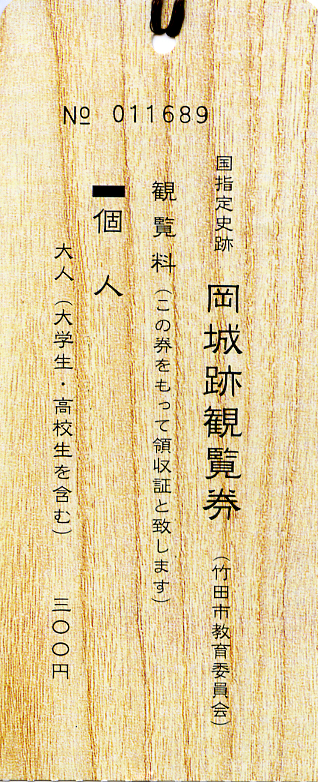 № 011689
国指定史跡 岡城跡観覧券 (竹田市教育委員会)
観覧料(この券をもって領収証と致します)
個人
大人(大学生・高校生を含む) 三〇〇円